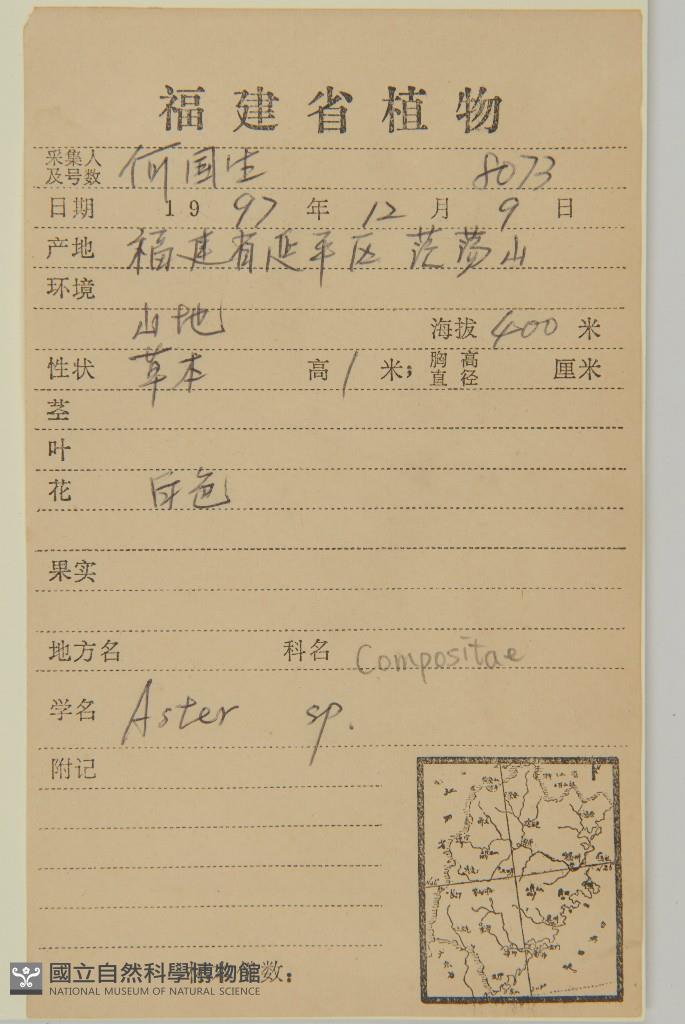 福建省植物
采集人及号数 何国生 8073
日期 1997年12月9日
产地 福建省延平区 茫荡山
环境
山地 海拔 400 米
性状 草本 高 1 米; 胸高直径 厘米
茎
叶
花 白色
果实
地方名 科名 Compositae
学名 Aster sp.
附记
數:
國立自然科學博物館
NATIONAL MUSEUM OF NATURAL SCIENCE